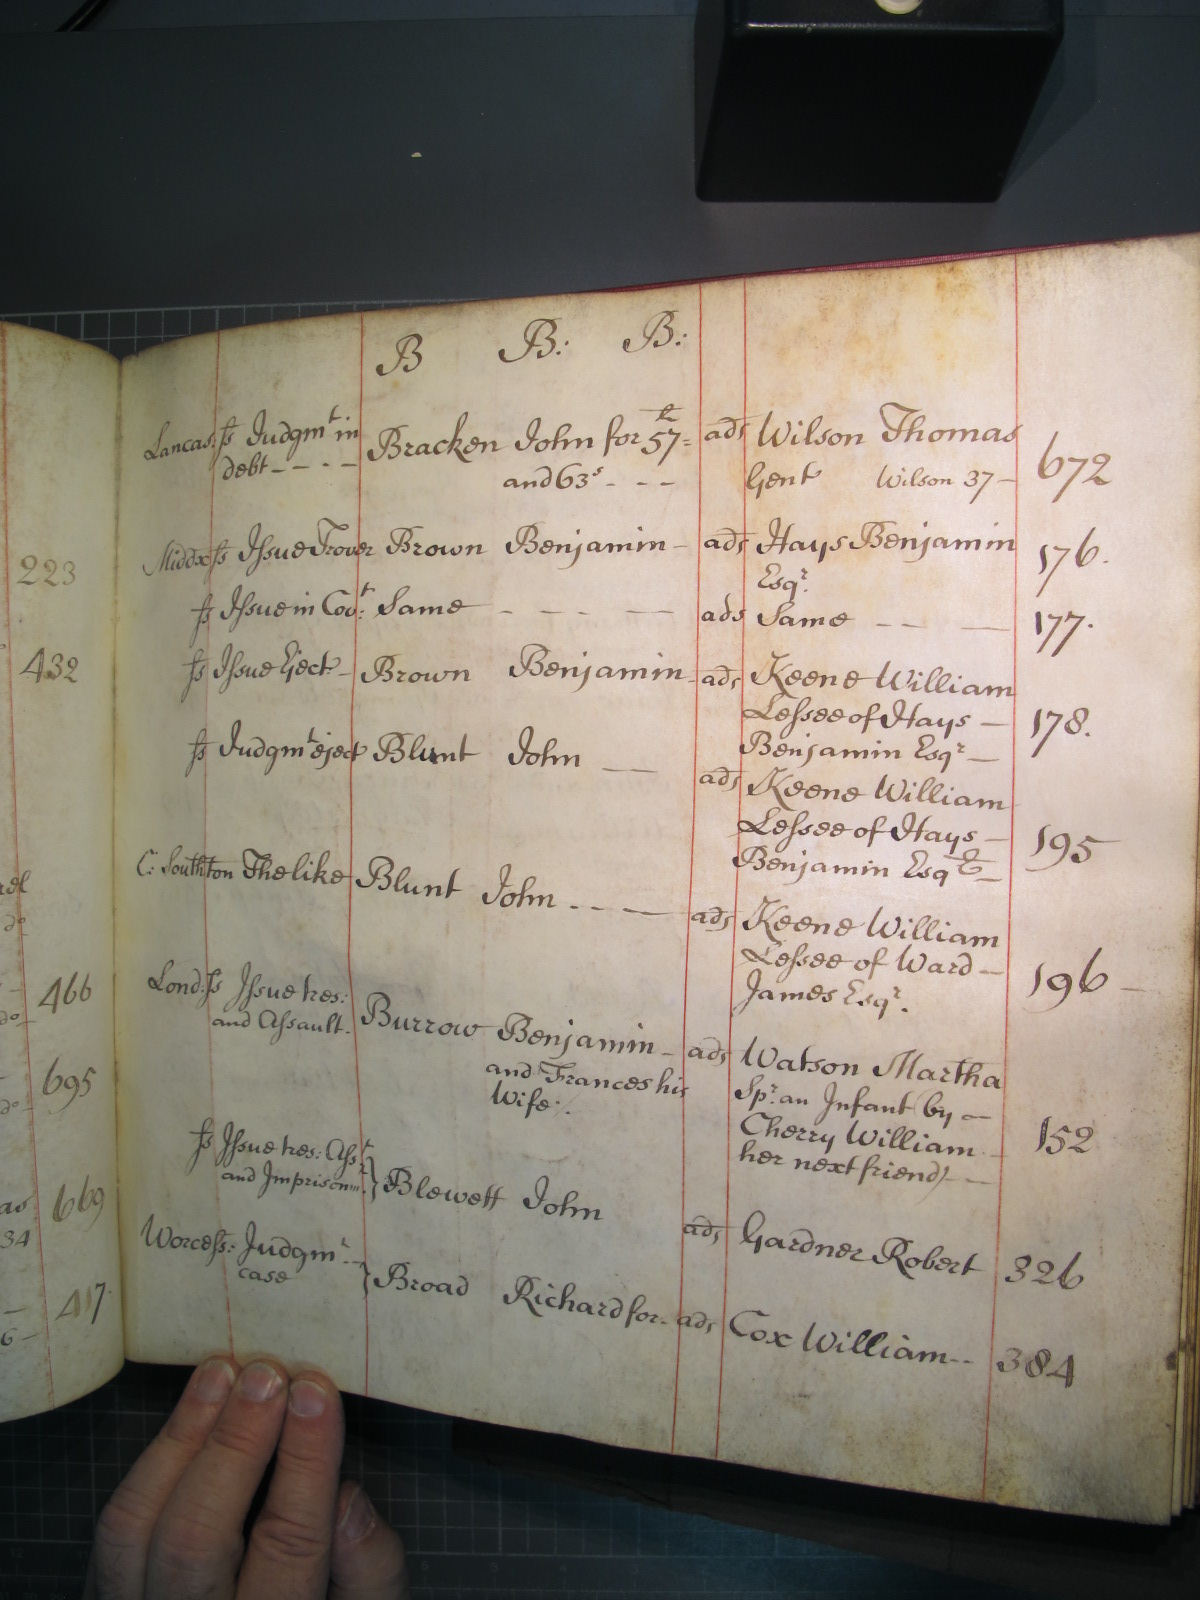 B B: B:
Lancas: ſs Judgmt in Bracken John for 57 = ads Wilson Thomas
debt - - - - and 63s - - - Gent Wilson 37 - 672
Middx ſs Issue Trover Brown Benjamin - ads Hays Benjamin 176.
Esqr.
ſs Issue in Covt: Same - - - - ads Same - - - 177.
ſs Issue Eject - Brown Benjamin - ads Keene William
Lessee of Hays - 178.
Benjamin Esqr -
ſs Judgmt eject Blunt John - - ads Keene William
Lessee of Hays - 195
Benjamin Esqr -
C: Southton The like Blunt John - - - - ads Keene William
Lessee of Ward - 196 -
James Esqr.
Lond: ſs Issue tres: Burrow Benjamin - ads Watson Martha
and Assault. and Frances his Spr: an Infant by -
Wife :. Cherry William - 152
her next friend) - -
ſs Issue tres: Asst
and Imprisonmt. } Blewett John ads Gardner Robert 326
Worcesſs: Judgmt - -
case } Broad Richard for - ads Cox William - - 384
223
432
466
695
669
34
417
6 -